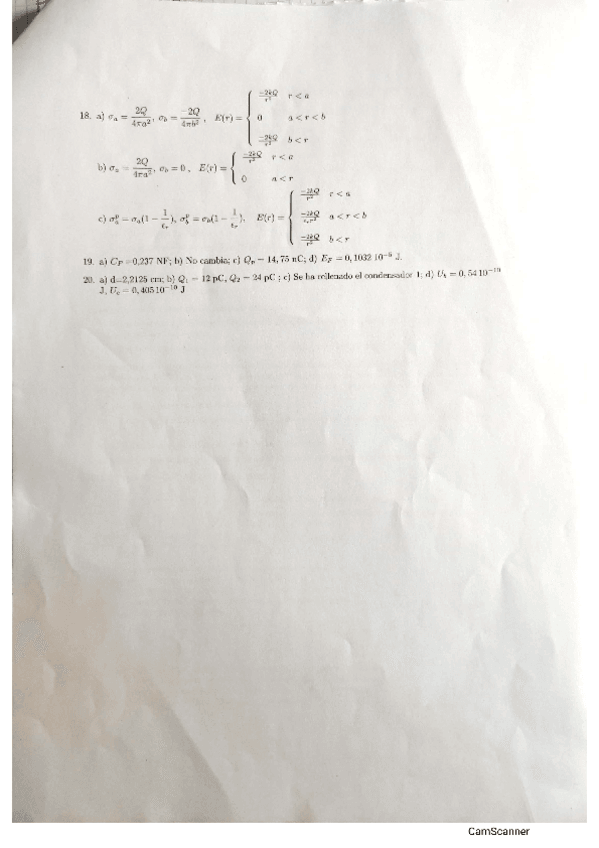 18. a) σₐ = 2Q/4πa², σ_b = −2Q/4πb², E(r) = { −2kQ/r² r < a
0 a < r < b
−2kQ/r² b < r
b) σₐ = 2Q/4πa², σ_b = 0, E(r) = { −2kQ/r² r < a
0 a < r
c) σₐᵖ = σₐ(1 − 1/εᵣ), σ_bᵖ = σ_b(1 − 1/εᵣ), E(r) = { r < a
a < r < b
b < r
19. a) C_F =0,237 NF; b) No cambia; c) = 14,75 nC; d) E_F = 0,1032 10⁻⁶ J.
20. a) d=2,2125 cm; b) Q₁ = 12 pC, Q₂ = 24 pC ; c) Se ha rellenado el condensador 1; d) = 0,54 10⁻¹⁰
J, = 0,405 10⁻¹⁰ J
CamScanner